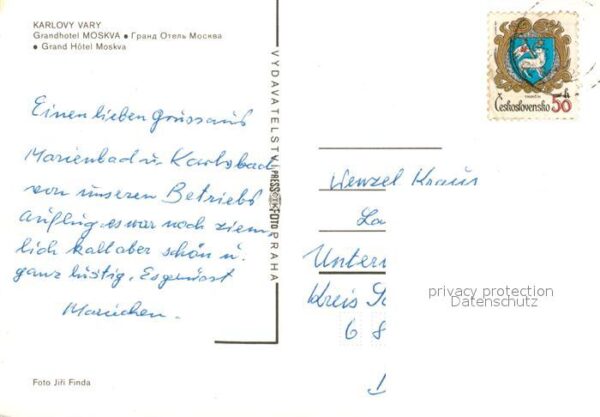 KARLOVY VARY
Grandhotel MOSKVA ● Гранд Отель Москва
● Grand Hôtel Moskva
Einen lieben Gruss aus
Marienbad u. Karlsbad
von unseren Betriebs
Ausflug, es war noch ziem-
lich kalt aber schön u.
ganz lustig. Es grüsst
Foto Jiří Finda
VYDAVATELSTVÍ PRESSFOTO PRAHA
Československo 50 h
Wenzel Kraus
La
Untern
Kreis Sc
6 8
privacy protection
Datenschutz